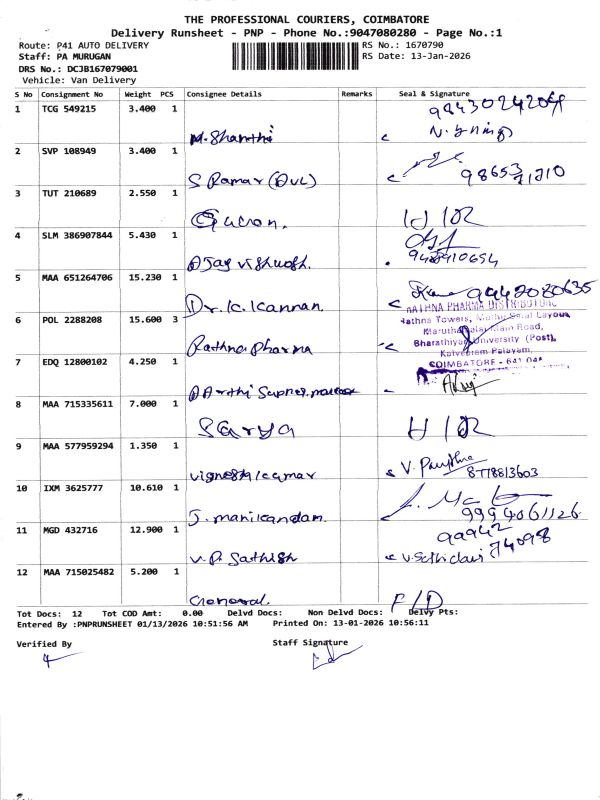 THE PROFESSIONAL COURIERS, COIMBATORE
Delivery Runsheet - PNP - Phone No.:9047080280 - Page No.:1
Route: P41 AUTO DELIVERY RS No.: 1670790
Staff: PA MURUGAN RS Date: 13-Jan-2026
DRS No.: DCJB167079001
Vehicle: Van Delivery
S No Consignment No Weight PCS Consignee Details Remarks Seal & Signature
1 TCG 549215 3.400 1
M. Shanthi
2 SVP 108949 3.400 1
S Ramar (DVL)
3 TUT 210689 2.550 1
4 SLM 386907844 5.430 1
5 MAA 651264706 15.230 1
Dr. K. Kannan 9442080635
6 POL 2288208 15.600 3
Rathna Pharma
RATHNA PHARMA DISTRIBUTORS
Rathna Towers, Layout,
Maruthamalai Main Road,
Bharathiyar University (Post),
Kalveeram Palayam,
COIMBATORE - 641 046
7 EDQ 12800102 4.250 1
8 MAA 715335611 7.000 1
Sarya
9 MAA 577959294 1.350 1
Vignesh Kumar 8778813603
10 IXM 3625777 10.610 1
J. Manikandam 9994061126
11 MGD 432716 12.900 1
V.P. Sathish 99942 74098
12 MAA 715025482 5.200 1
General F/D
Tot Docs: 12 Tot COD Amt: 0.00 Delvd Docs: Non Delvd Docs: Delvy Pts:
Entered By :PNPRUNSHEET 01/13/2026 10:51:56 AM Printed On: 13-01-2026 10:56:11
Verified By Staff Signature